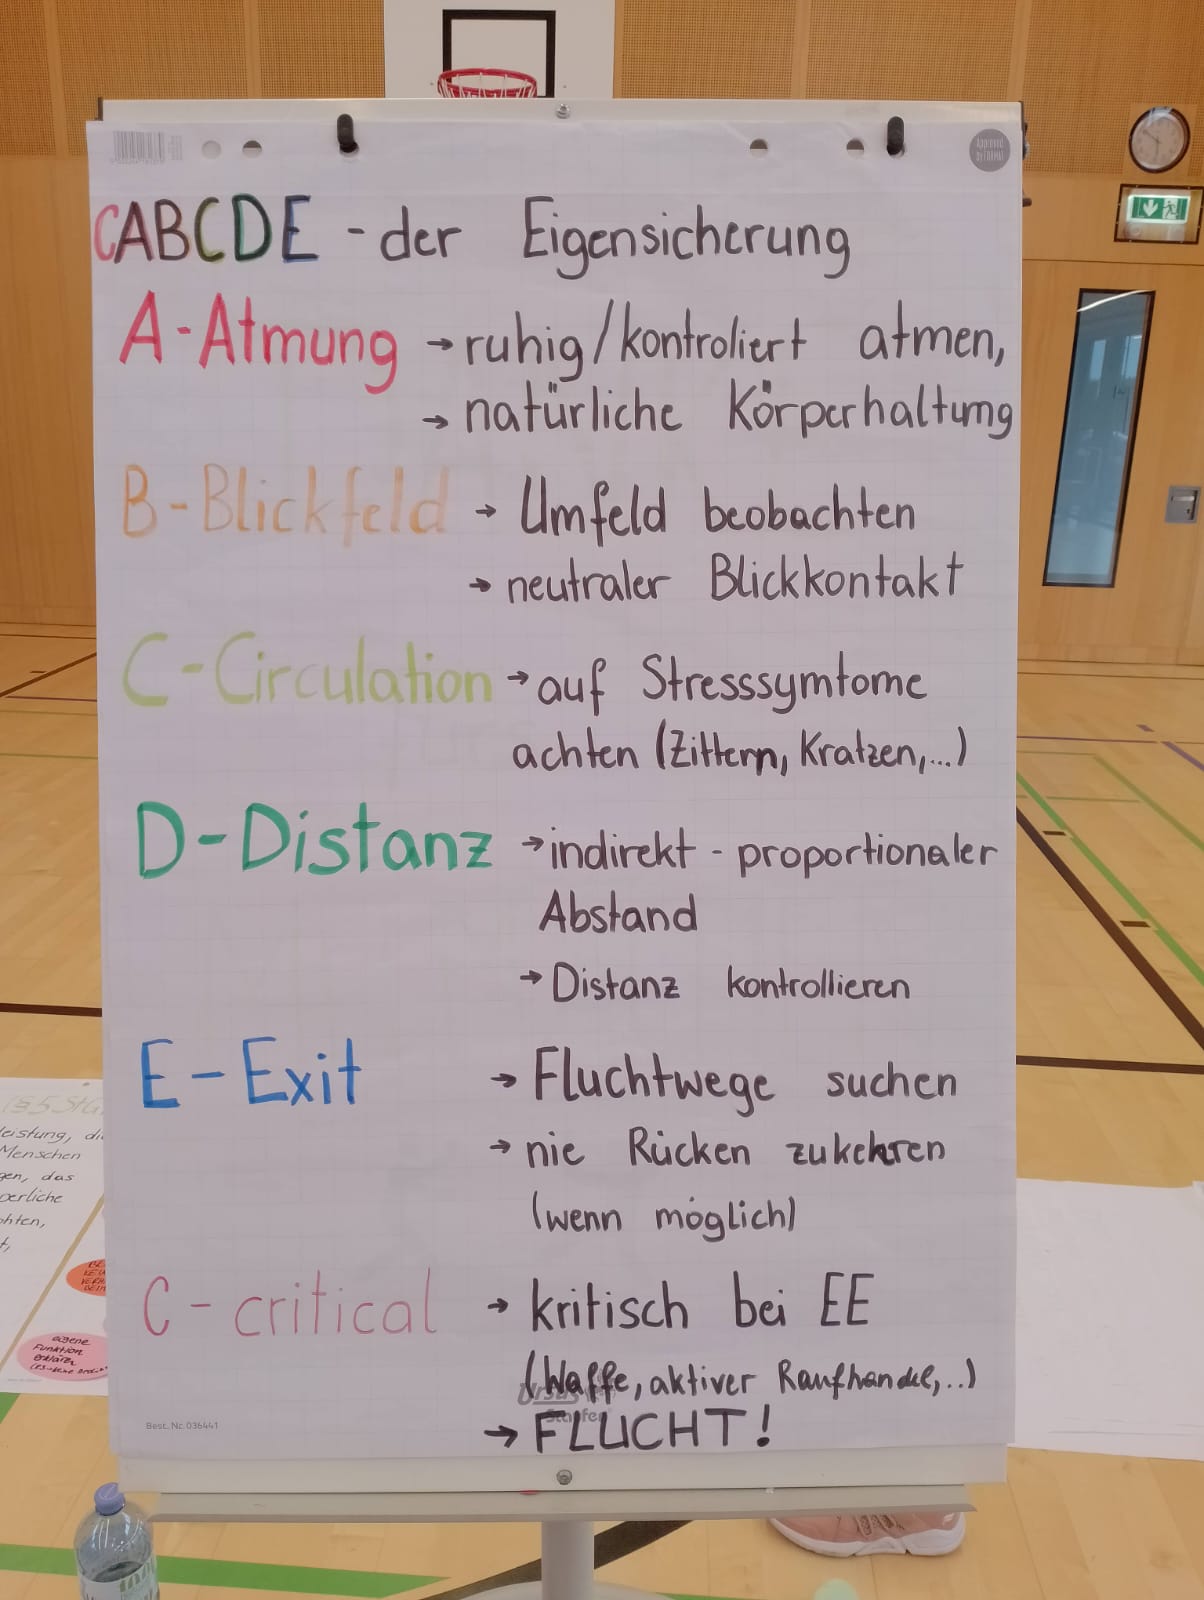 Approved
by FORMAT
CABCDE - der Eigensicherung
A - Atmung → ruhig/kontroliert atmen,
→ natürliche Körperhaltung
B - Blickfeld → Umfeld beobachten
→ neutraler Blickkontakt
C - Circulation → auf Stresssymtome
achten (Zittern, Kratzen,...)
D - Distanz → indirekt - proportionaler
Abstand
→ Distanz kontrollieren
E - Exit → Fluchtwege suchen
→ nie Rücken zukehren
(wenn möglich)
C - critical → kritisch bei EE
(Waffe, aktiver Raufhandel,..)
→ FLUCHT!
Ursus
Staufen
Best. Nr. 036441
§ 5
leistung, di
Menschen
gen, das
perliche
ohten,
t,
eigene
Funktion
erklären